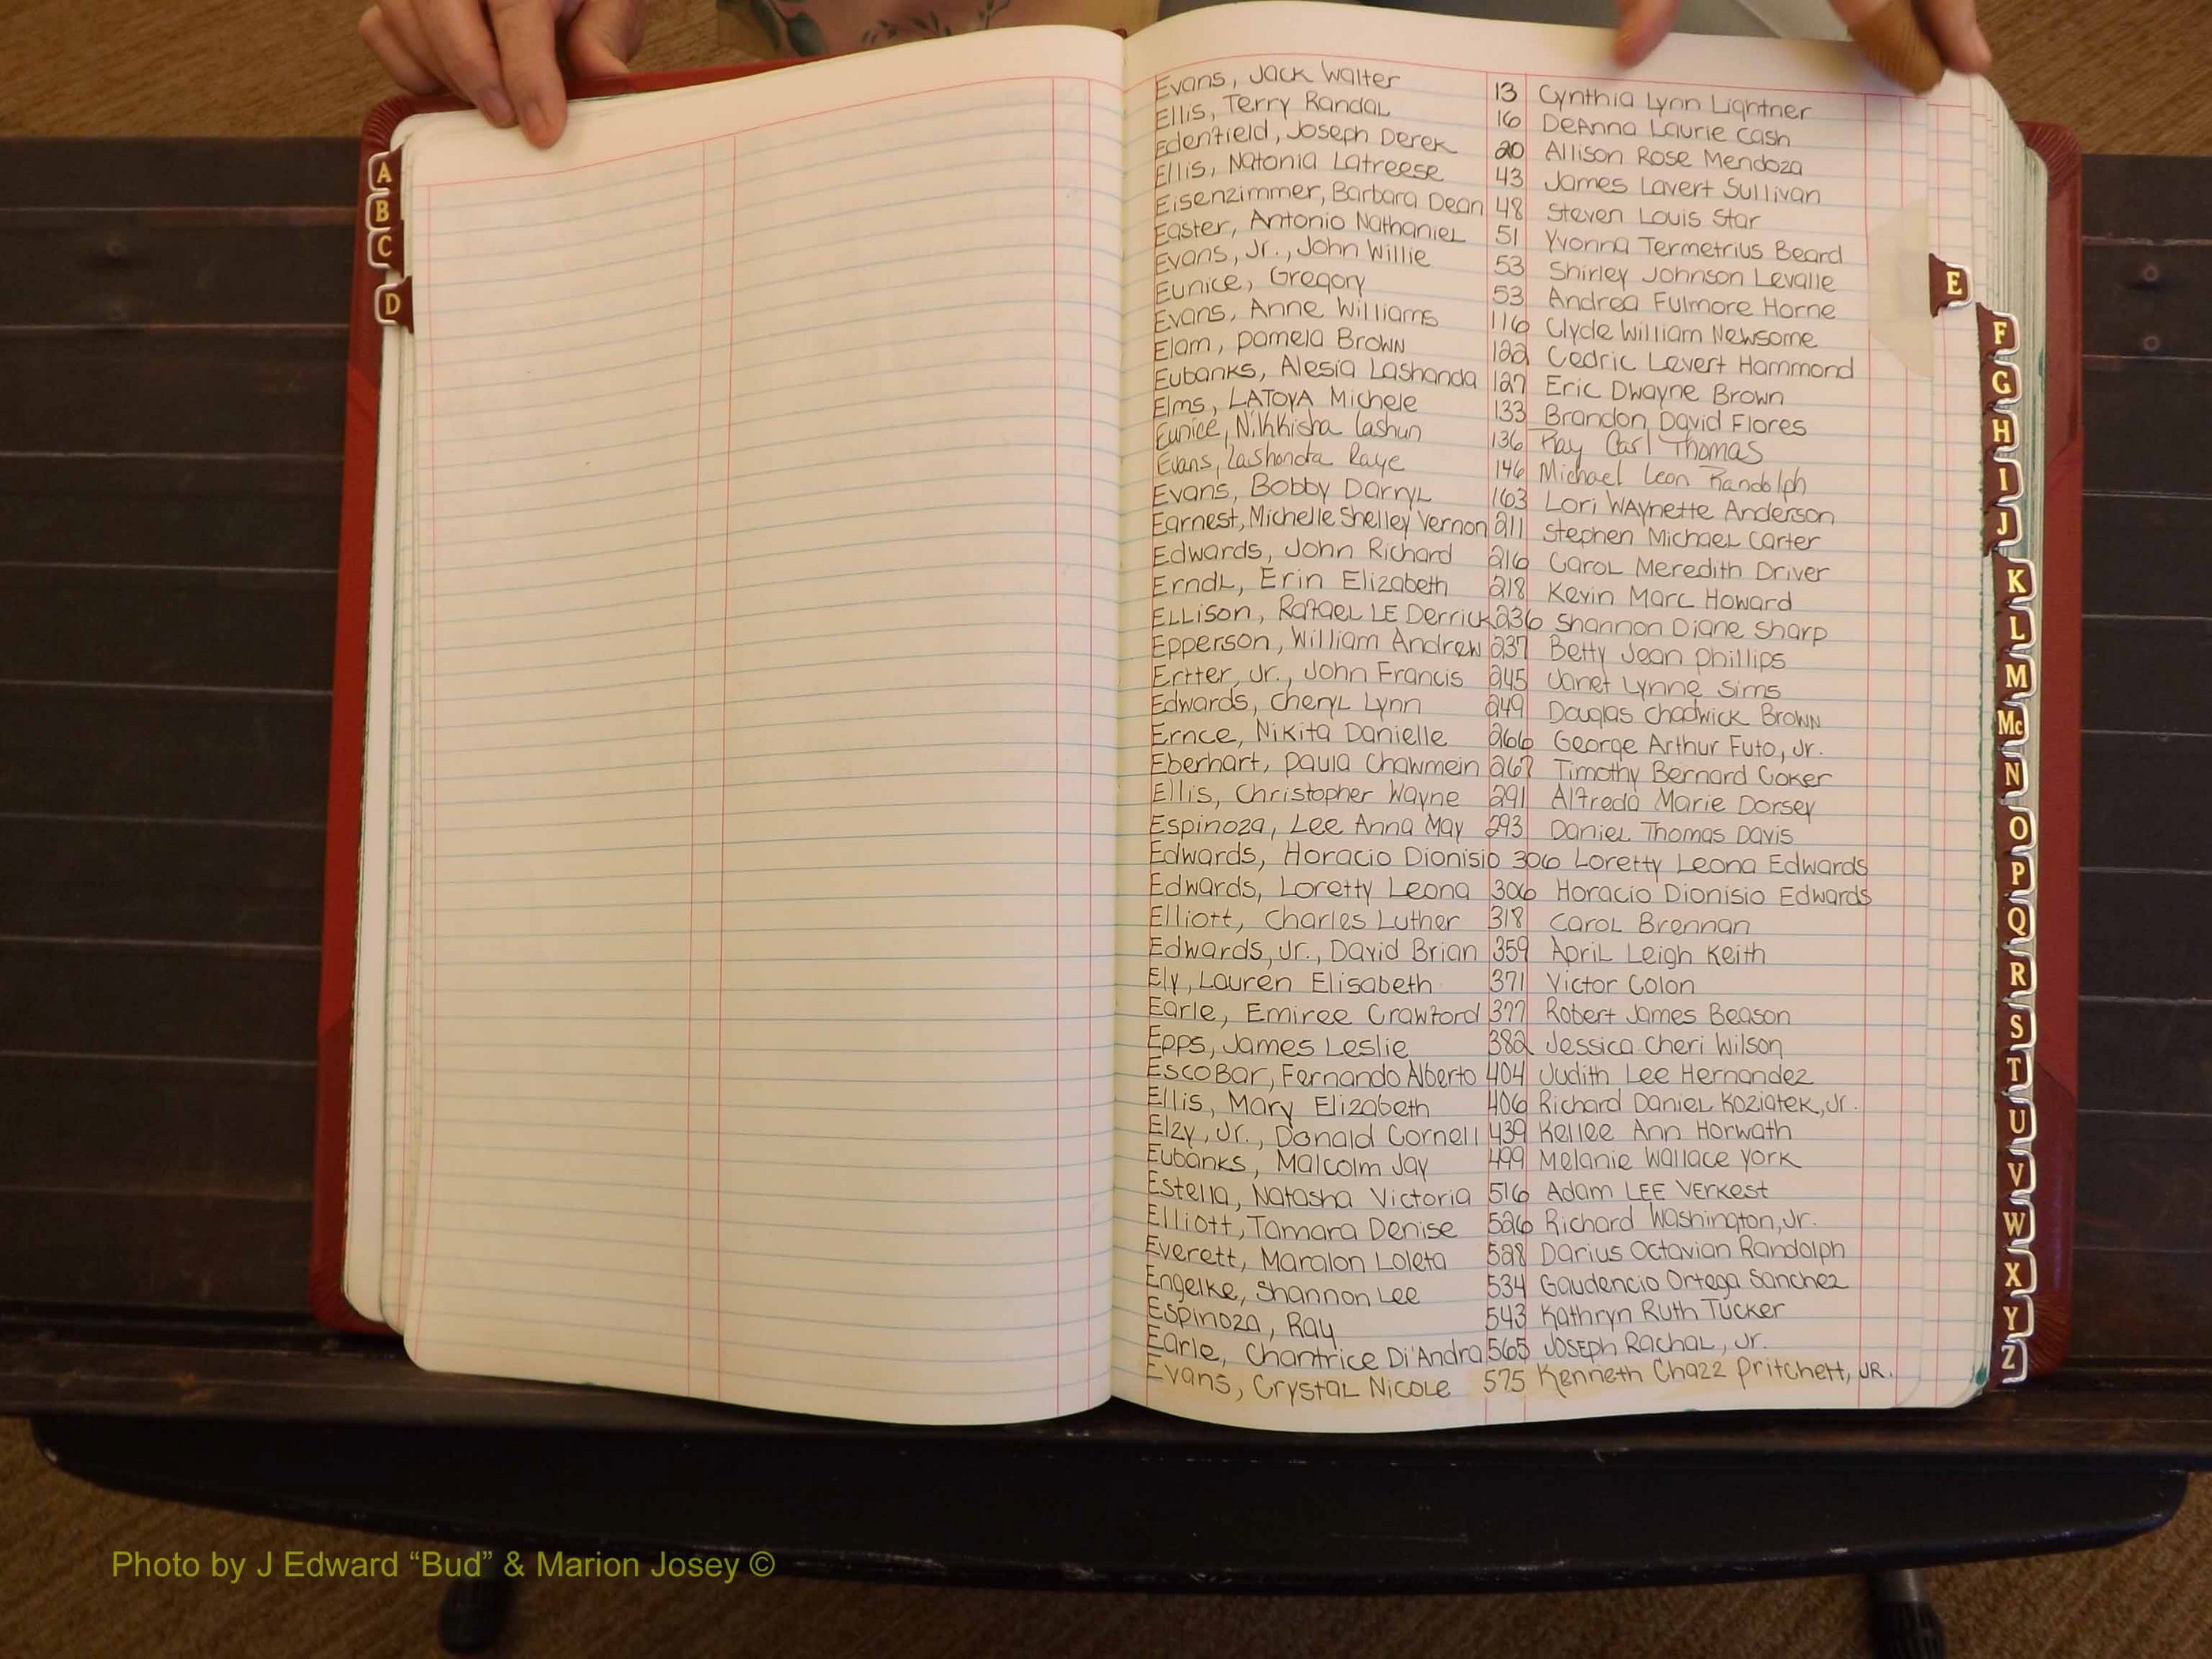 A
B
C
D
Evans, Jack Walter 13 Cynthia Lynn Lightner
Ellis, Terry Randal 16 DeAnna Laurie Cash
Edenfield, Joseph Derek 20 Allison Rose Mendoza
Ellis, Natonia Latreese 43 James Lavert Sullivan
Eisenzimmer, Barbara Dean 48 Steven Louis Star
Easter, Antonio Nathaniel 51 Yvonna Termetrius Beard
Evans, Jr., John Willie 53 Shirley Johnson Levalle
Eunice, Gregory 53 Andrea Fulmore Horne
Evans, Anne Williams 116 Clyde William Newsome
Elam, Pamela Brown 122 Cedric Levert Hammond
Eubanks, Alesia Lashanda 127 Eric Dwayne Brown
Elms, LATOYA Michele 133 Brandon David Flores
Eunice, Nikkisha Lashun 136 Ray Carl Thomas
Evans, LaShonda Raye 146 Michael Leon Randolph
Evans, Bobby Darryl 163 Lori WAynette Anderson
Earnest, Michelle Shelley Vernon 211 Stephen Michael Carter
Edwards, John Richard 216 Carol Meredith Driver
Erndl, Erin Elizabeth 218 Kevin Marc Howard
ELLison, Rafael LE Derrick 236 Shannon Diane Sharp
Epperson, William Andrew 237 Betty Jean Phillips
Ertter, Jr., John Francis 245 Janet Lynne Sims
Edwards, Cheryl Lynn 249 Douglas Chadwick Brown
Ernce, Nikita Danielle 266 George Arthur Futo, Jr.
Eberhart, Paula Chawmein 267 Timothy Bernard Coker
Ellis, Christopher Wayne 291 Alfreda Marie Dorsey
Espinoza, Lee Anna May 293 Daniel Thomas Davis
Edwards, Horacio Dionisio 306 Loretty Leona Edwards
Edwards, Loretty Leona 306 Horacio Dionisio Edwards
Elliott, Charles Luther 318 Carol Brennan
Edwards, Jr., David Brian 359 April Leigh Keith
Ely, Lauren Elisabeth 371 Victor Colon
Earle, Emiree Crawford 377 Robert James Beason
Epps, James Leslie 382 Jessica Cheri Wilson
EscoBar, Fernando Alberto 404 Judith Lee Hernandez
Ellis, Mary Elizabeth 406 Richard Daniel Koziatek, Jr.
Elzy, Jr., Donald Cornell 439 Kellee Ann Horwath
Eubanks, Malcolm Jay 499 Melanie Wallace York
Estella, Natasha Victoria 516 Adam LEE Verkest
Elliott, Tamara Denise 526 Richard Washington, Jr.
Everett, Maralon Loleta 528 Darius Octavian Randolph
Engelke, Shannon Lee 534 Gaudencio Ortega Sanchez
Espinoza, Ray 543 Kathryn Ruth Tucker
Earle, Chantrice Di'Andra 565 Joseph Rachal, Jr.
Evans, Crystal Nicole 575 Kenneth Chazz Pritchett, JR.
E
F
G
H
I
J
K
L
M
Mc
N
O
P
Q
R
S
T
U
V
W
X
Y
Z
Photo by J Edward “Bud” & Marion Josey ©